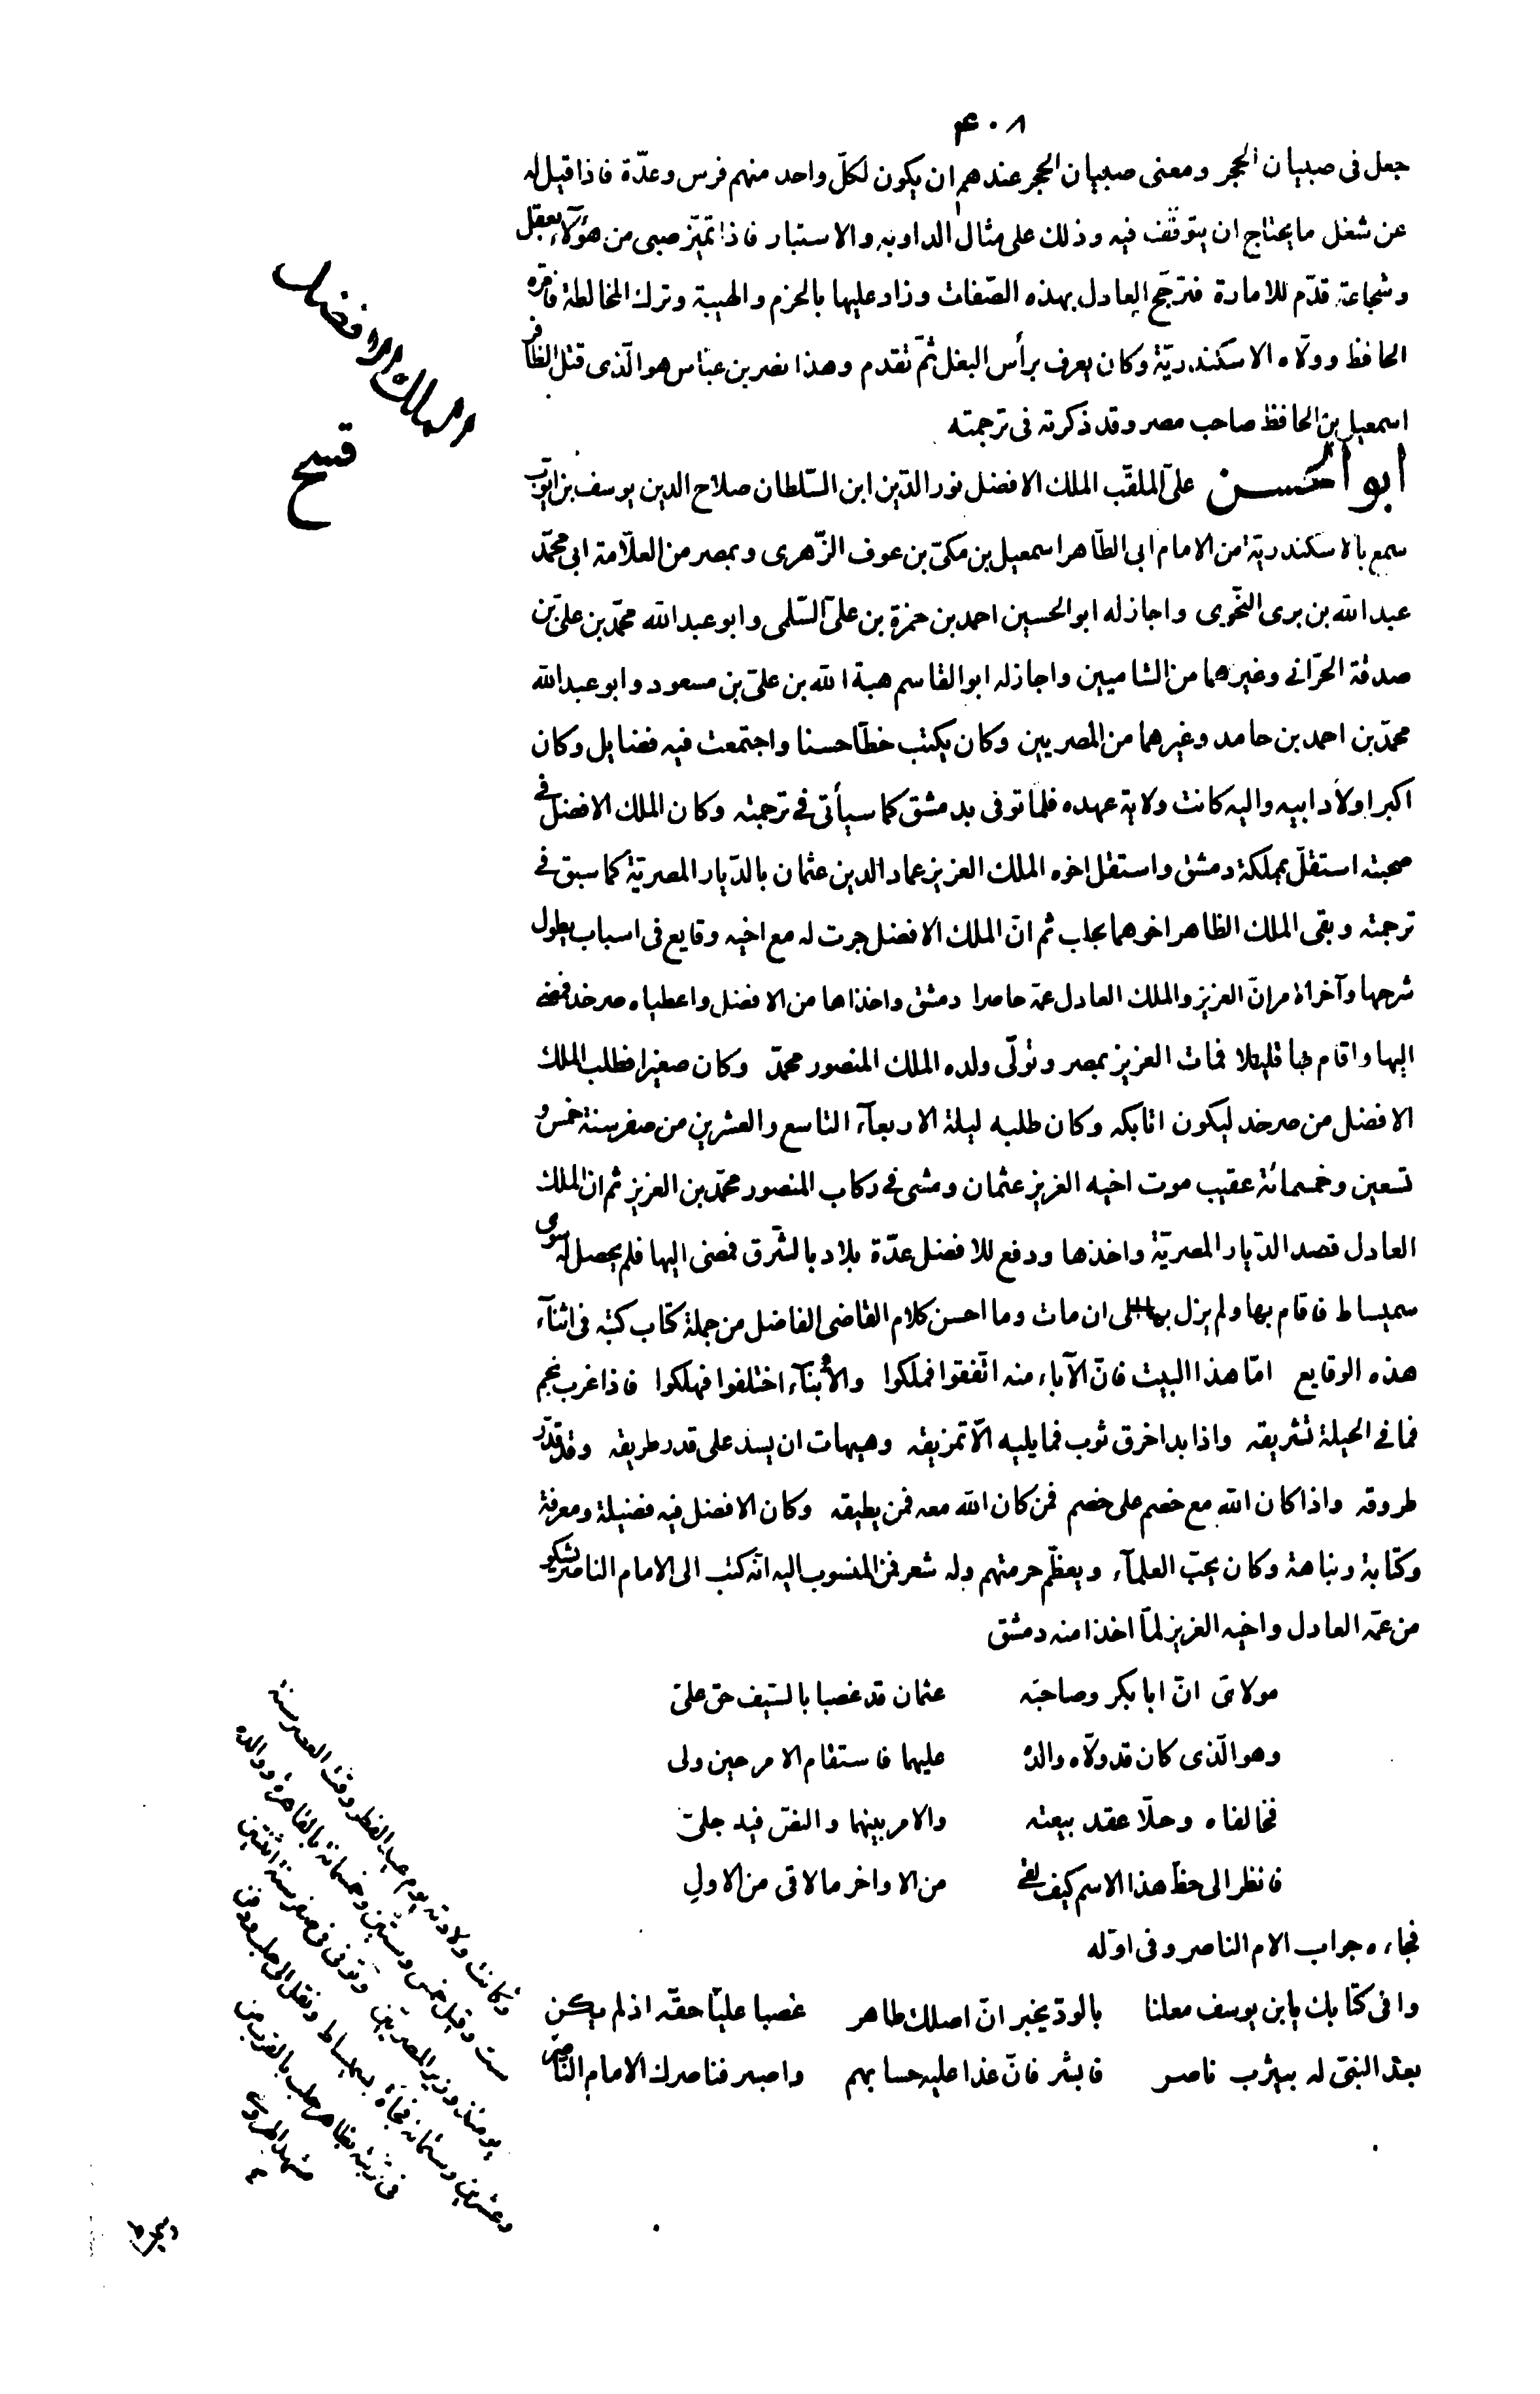 ٤٠٨
جعل فى صبيان الحجر ومعنى صبيان الحجر عندهم ان يكون لكلّ واحد منهم فرس وعدّة فاذا قيل له
عن شغل ما يحتاج ان يتوقّف فيه وذلك على مثال الداويه والاستبار فاذا تميّز صبى من هؤلآء بعقل
وشجاعة قدّم للامارة فترجّح العادل بهذه الصّفات وزاد عليها بالحزم والهيبة وترك المخالطة فامّره
الحافظ وولّاه الاسكندريّة وكان يعرف برأس البغل ثمّ تقدم وهذا نصر بن عبّاس هو الّذى قتل الظافر
اسمعيل بن الحافظ صاحب مصر وقد ذكرته فى ترجمته
الملك الافضل
ابو الحسن علىّ الملقّب الملك الافضل نور الدّين ابن السّلطان صلاح الدين يوسف بن ايّوب
سمع بالاسكندريّة من الامام ابى الطّاهر اسمعيل بن مكىّ بن عوف الزّهرى وبمصر من العلّامة ابى محمّد
عبد الله بن برى النّحوى واجاز له ابو الحسين احمد بن حمزة بن علىّ السّلمى وابو عبد الله محمّد بن علىّ بن
صدقة الحرّانے وغيرهما من الشاميين واجاز له ابو القاسم هبة الله بن علىّ بن مسعود وابو عبد الله
محمّد بن احمد بن حامد وغيرهما من المصريين وكان يكتب خطّا حسنا واجتمعت فيه فضايل وكان
اكبر اولاد ابيه واليه كانت ولاية عهده فلمّا توفى بدمشق كما سيأتى فے ترجمته وكان الملك الافضل فے
صحبته استقلّ بمملكة دمشق واستقل اخوه الملك العزيز عماد الدين عثمان بالدّيار المصريّة كما سبق فے
ترجمته وبقى الملك الظاهر اخوهما بحلب ثم انّ الملك الافضل جرت له مع اخيه وقايع فى اسباب يطول
شرحها وآخر الامر انّ العزيز والملك العادل عمّه حاصرا دمشق واخذاها من الافضل واعطياه صرخد فمضى
اليها واقام بها قليلا فمات العزيز بمصر وتولّى ولده الملك المنصور محمّد وكان صغيرا فطلب الملك
الافضل من صرخد ليكون اتابكه وكان طلبه ليلة الاربعآء التاسع والعشرين من صفر سنة خمس و
تسعين وخمسمائة عقيب موت اخيه العزيز عثمان ومشى فے ركاب المنصور محمّد بن العزيز ثم ان الملك
العادل قصد الدّيار المصريّة واخذها ودفع للافضل عدّة بلاد بالشّرق فمضى اليها فلم يحصل له سوى
سميساط فاقام بها ولم يزل بها الى ان مات وما احسن كلام القاضى الفاضل من جملة كتاب كتبه فى اثنآء
هذه الوقايع امّا هذا البيت فانّ الآباء منه اتّفقوا فملكوا والأبنآء اختلفوا فهلكوا فاذا غرب نجم
فما فے الحيلة تشريقه واذا بدا خرق ثوب فما يليه الّا تمزيقه وهيهات ان يسد على قدر طريقه وقد قدّر
طروقه واذا كان الله مع خصم على خصم فمن كان الله معه فمن يطيقه وكان الافضل فيه فضيلة ومعرفة
وكتابة ونباهة وكان يحبّ العلمآء ويعظّم حرمتهم وله شعر فمن المنسوب اليه انّه كتب الى الامام الناصر يشكو
من عمّه العادل واخيه العزيز لمّا اخذا منه دمشق
مولاىَ انّ ابا بكر وصاحبَه عثمان قد غصبا بالسّيف حق علىّ
وهو الّذى كان قد ولّاه والدُه عليهما فاستقام الامر حين ولى
فخالفاه وحلّا عقد بيعته والامر بينهما والنصّ فيه جلىّ
فانظر الى حظّ هذا الاسم كيف لقى من الاواخر ما لاقى من الاولِ
فجاءه جواب الامام الناصر وفى اوّله
وافى كتابك يابن يوسف معلنا بالودّ يخبر انّ اصلك طاهر غصبا عليّا حقّه اذ لم يكن
بعد النبىّ له بيثرب ناصر فابشر فانّ غدا عليه حسابهم واصبر فناصرك الامام الناصر
وكانت ولادته يوم عيد الفطر وقت العصر سنة
ست وقيل خمس وستّين وخمسمائة بالقاهرة ووالده
يومئذ وزير المصريّين وتوفى فى صفر سنة اثنتين
وعشرين وستمائة فجأة بسميساط ونقل الى حلب ودفن
فى تربته بظاهر حلب بالقرب من
مشهد الهروى